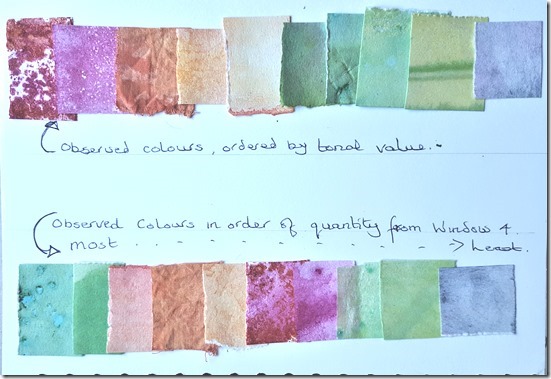 Observed colours, ordered by tonal value.
Observed Colours in order of quantity from Window 4
most . . . . . . . . . . . . → Least.